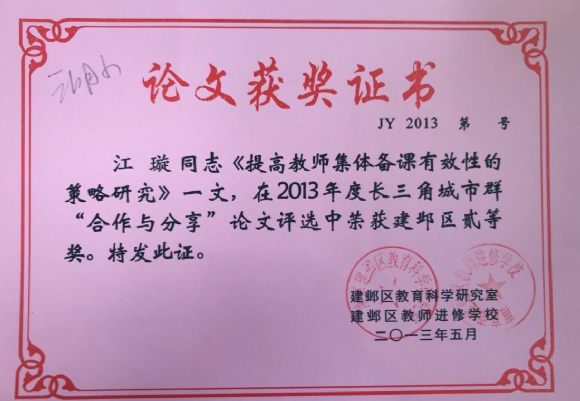 论文获奖证书
JY 2013 第 号
江 璇同志《提高教师集体备课有效性的
策略研究》一文，在2013年度长三角城市群
“合作与分享”论文评选中荣获建邺区贰等
奖。特发此证。
建邺区教育科学研究室
建邺区教师进修学校
二〇一三年五月